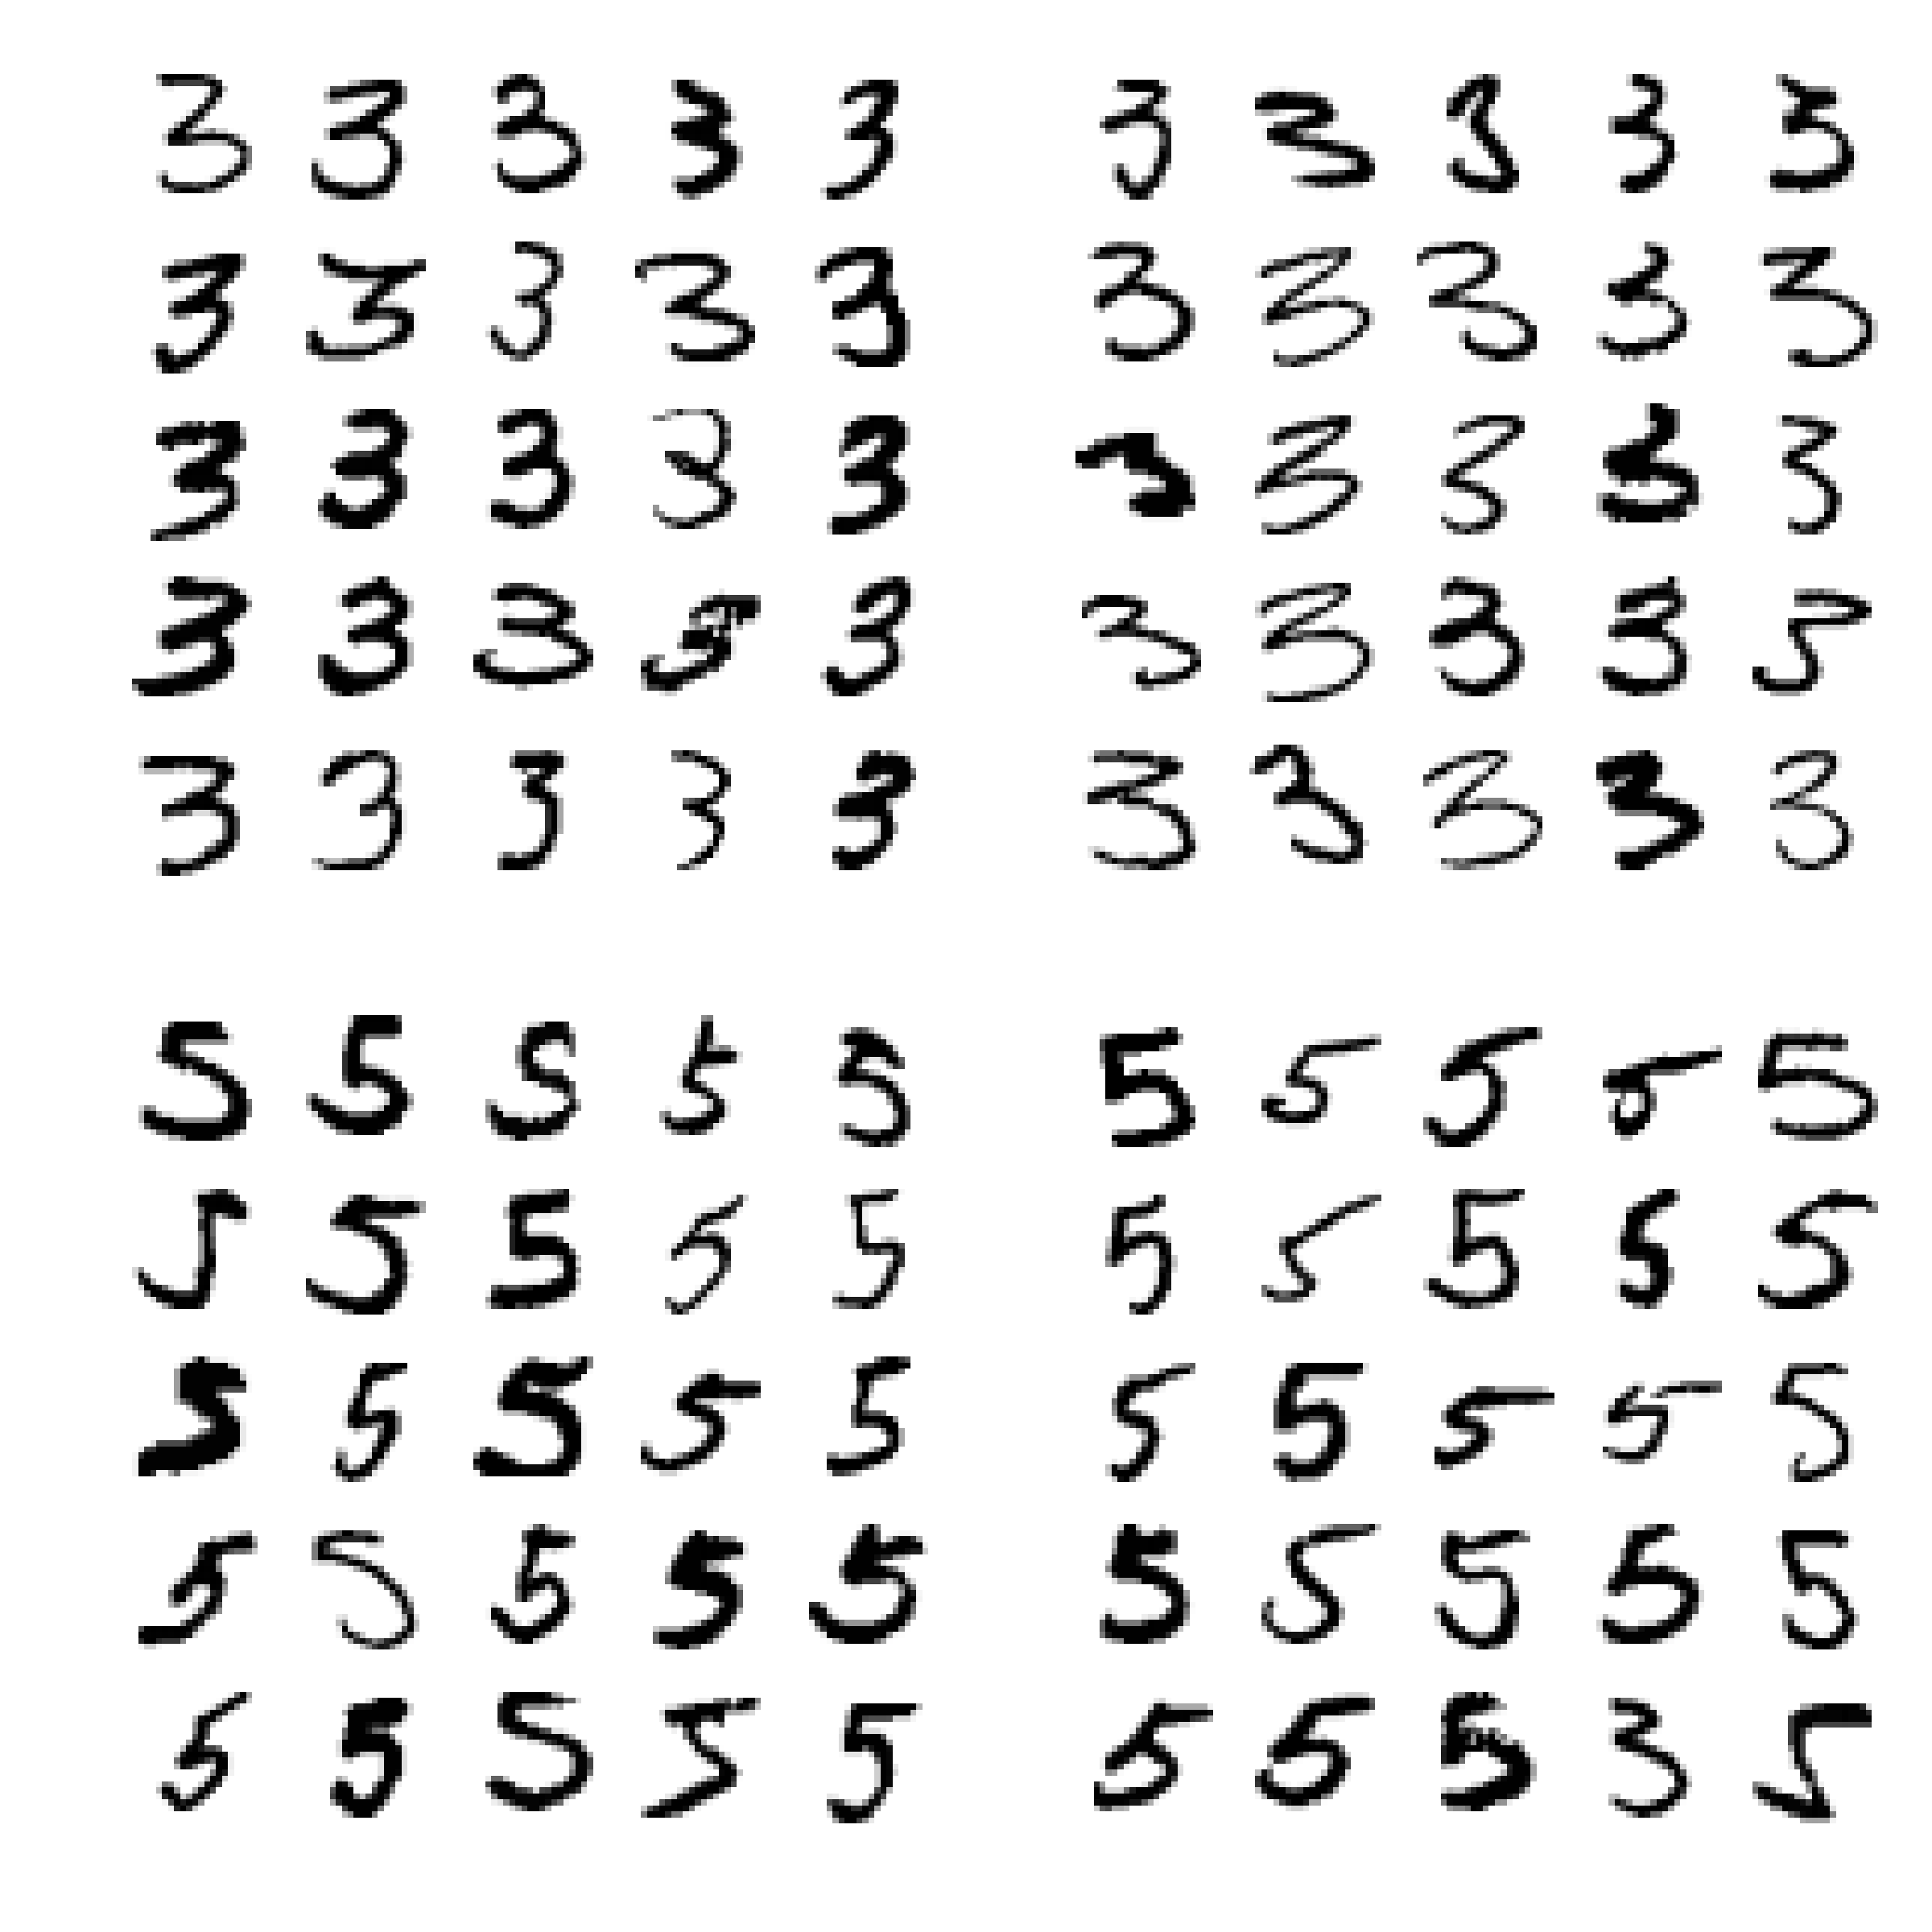 3 3 3 3 3 3 3 3 3 3
3 3 3 3 3 3 3 3 3 3
3 3 3 3 3 3 3 3 3 3
3 3 3 3 3 3 3 3 3 5
3 3 3 3 3 3 3 3 3 3
5 5 5 5 5 5 5 5 5 5
5 5 5 5 5 5 5 5 5 5
5 5 5 5 5 5 5 5 5 5
5 5 5 5 5 5 5 5 5 5
5 5 5 5 5 5 5 5 3 5